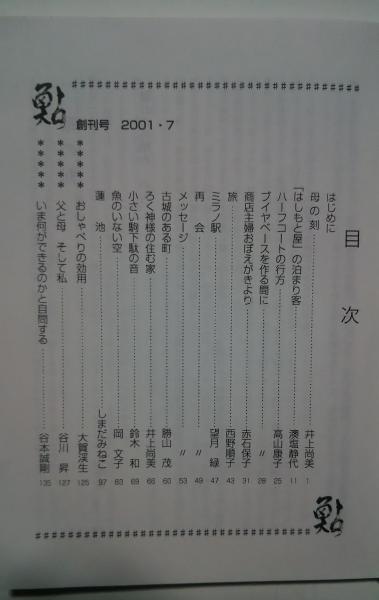 鮎
創刊号 2001・7
目次
はじめに
母の刻 井上尚美 1
「はしもと屋」の泊まり客 澳塩静代 11
ハーフコートの行方 高山康子 25
ブイヤベースを作る間に 〃 28
商店主婦おぼえがきより 赤石保子 31
旅 西野順子 43
ミラノ駅 望月 緑 47
再会 〃 49
メッセージ 〃 53
古城のある町 勝山 茂 60
ろく神様の住む家 井上尚美 66
小さい駒下駄の音 鈴木 和 69
魚のいない空 岡 文子 83
蓮池 しまだみねこ 97
***** おしゃべりの効用 大鷲渓生 125
***** 父と母 そして私 谷川 昇 127
***** いま何ができるのかと自問する 谷本誠剛 135
鮎